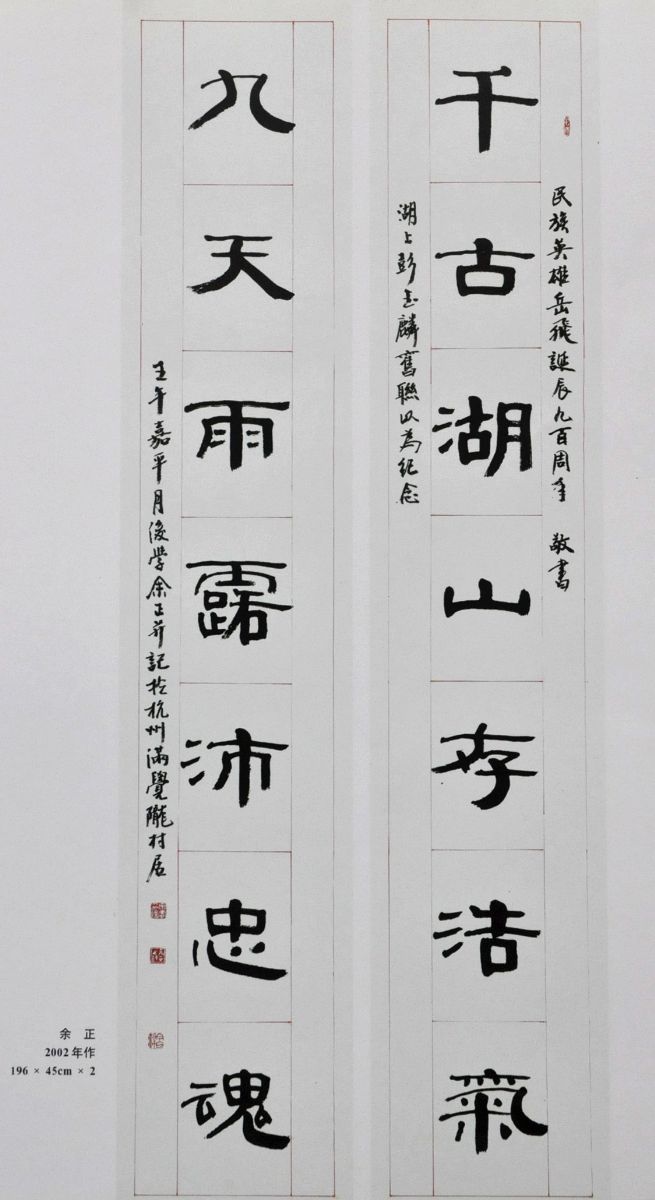 千古湖山存浩氣
民族英雄岳飛誕辰九百周年 敬書
湖上彭玉麟舊聯以為紀念
九天雨露沛忠魂
壬午嘉平月後學余正并記於杭州滿覺隴村居
余 正
2002 年作
196 × 45cm × 2